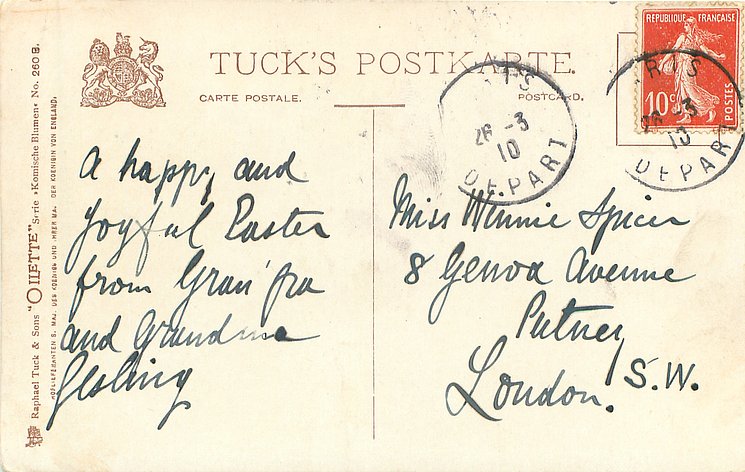 TUCK'S POSTKARTE.
CARTE POSTALE. POSTCARD.
REPUBLIQUE FRANÇAISE
10c
POSTES
26 -3
10
DEPART
26 -3
10
DEPART
A happy and
joyful Easter
from Gran'pa
and Grandma
Gesling
Miss Winnie Spicer
8 Genoa Avenue
Putney
London. S.W.
Raphael Tuck & Sons "OILETTE" Serie »Komische Blumen« No. 260 B.
HOFLIEFERANTEN S. MAJ. DES KOENIGS UND IHRER MAJ. DER KOENIGIN VON ENGLAND.